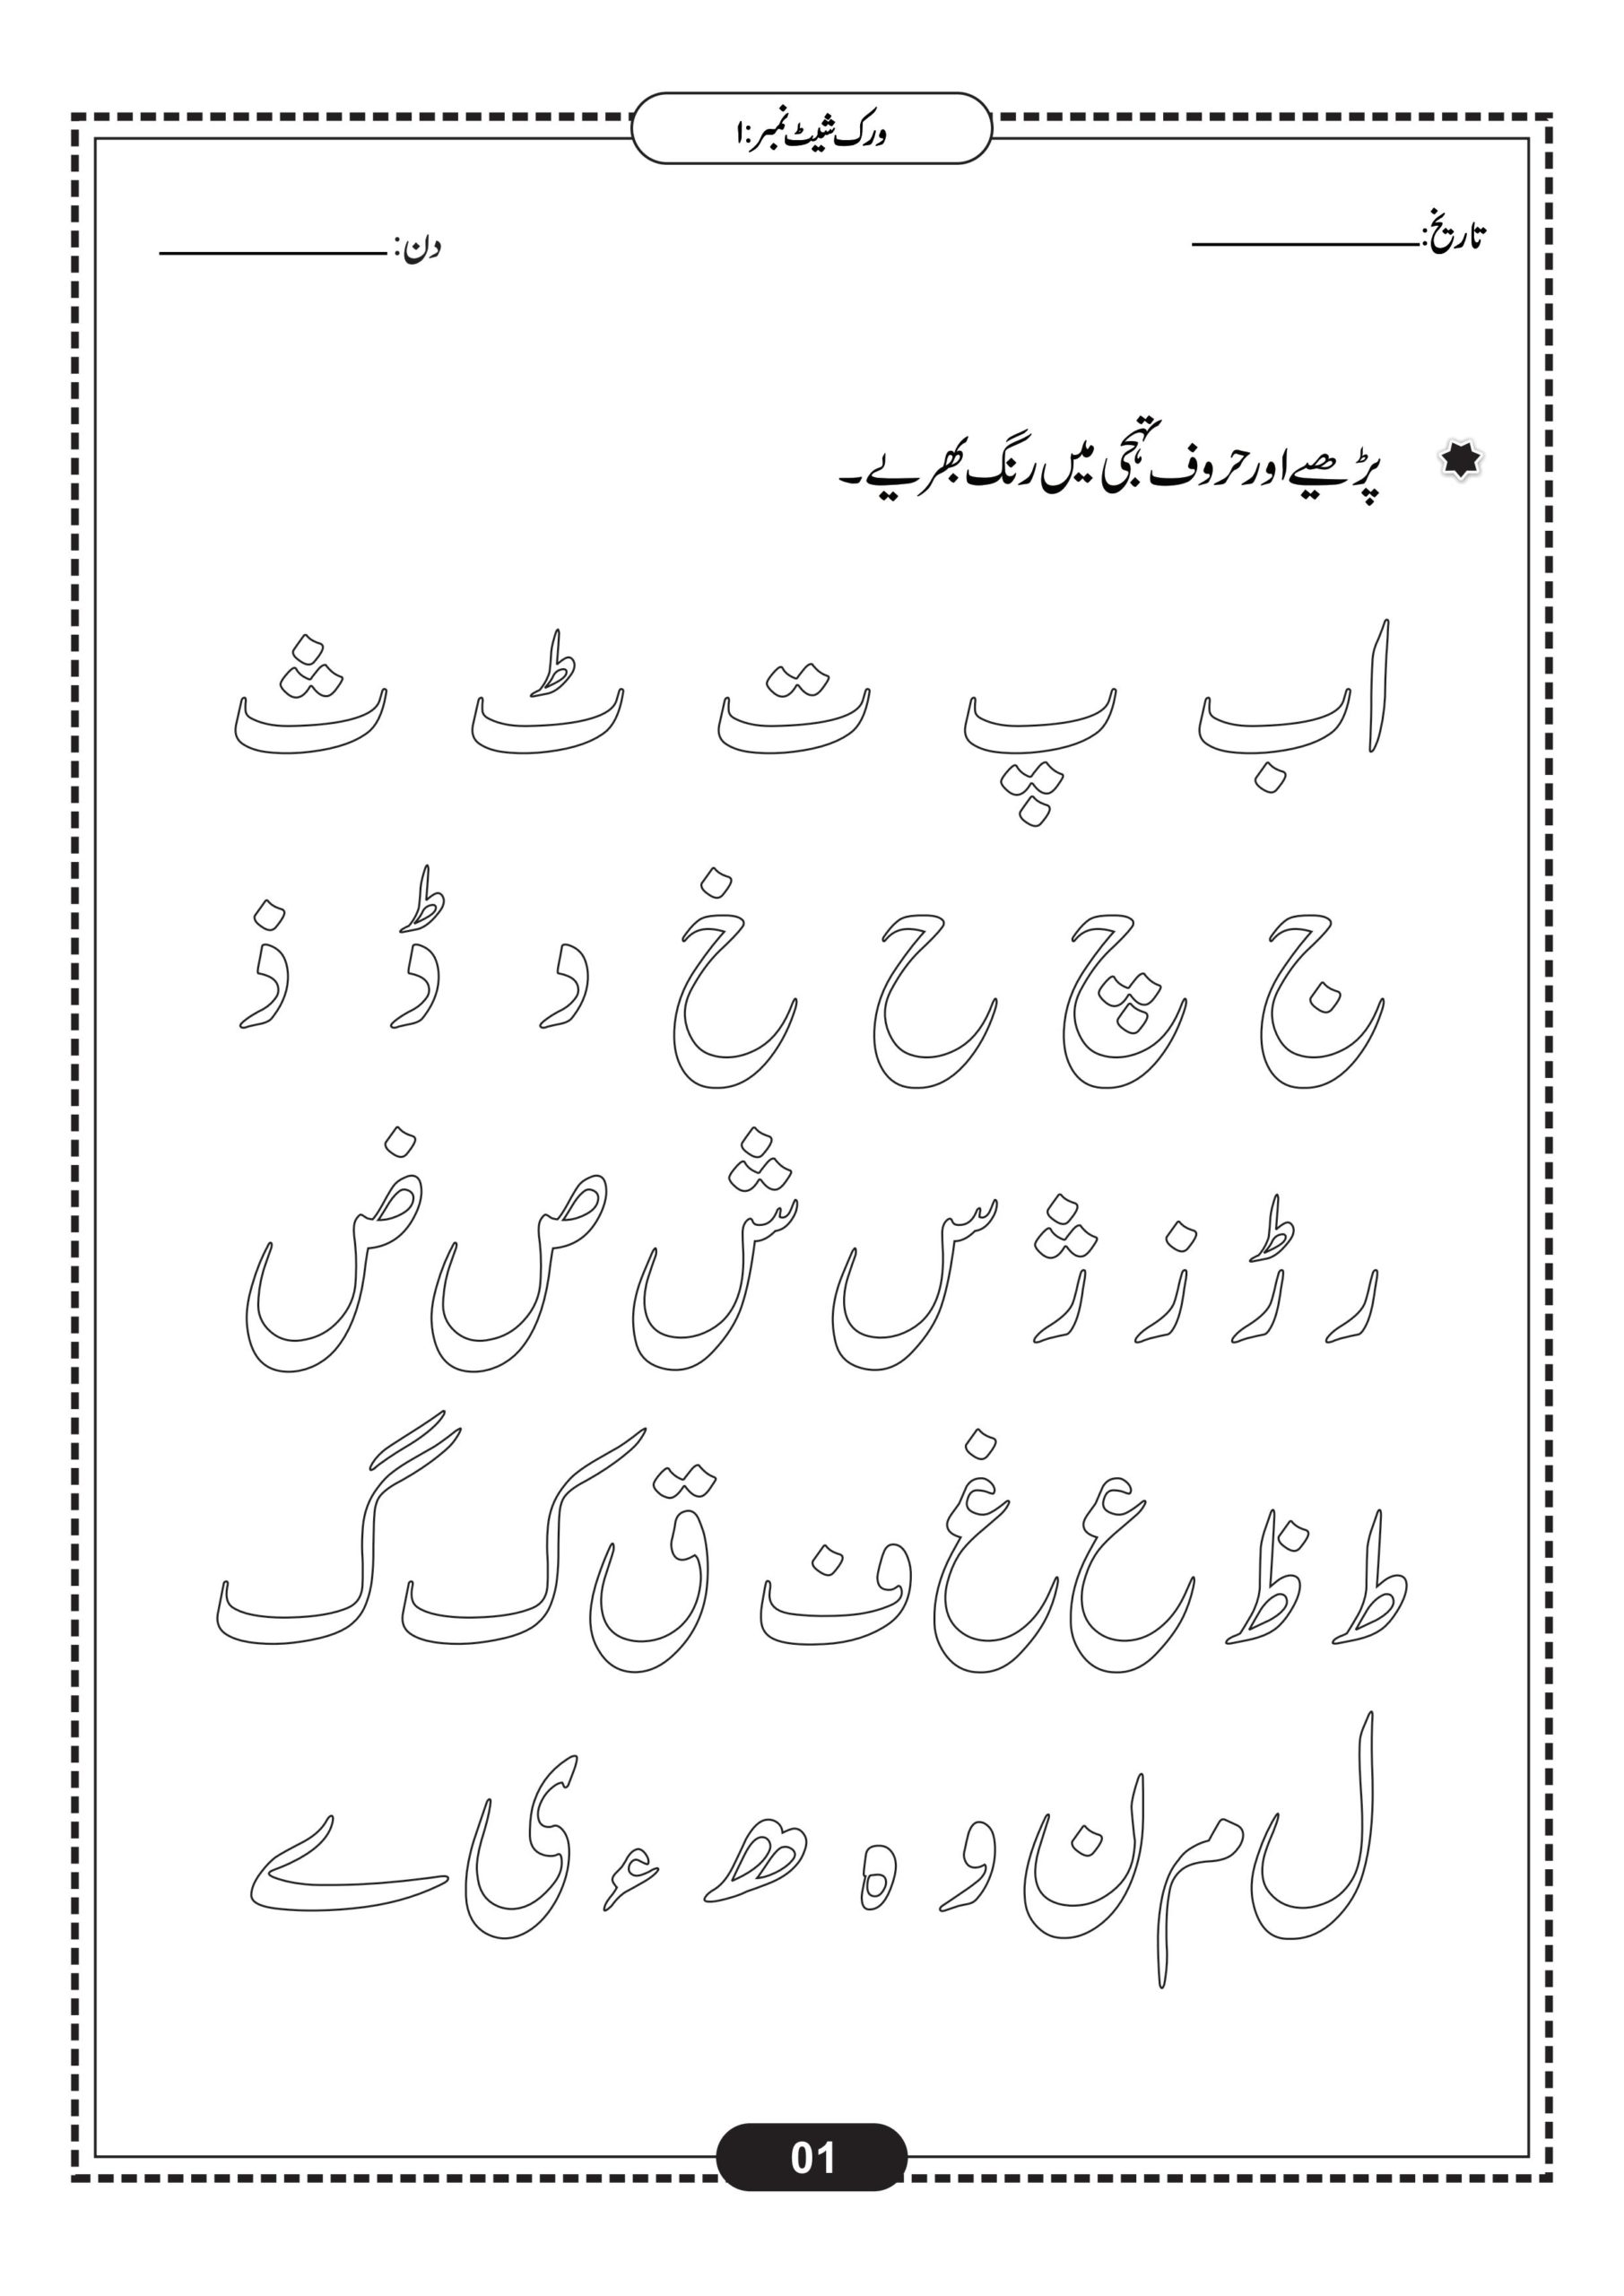 ورک شیٹ نمبر:۱
تاریخ:
دن:
پڑھیے اور حروف تہجی میں رنگ بھریے۔
ا ب پ ت ٹ ث
ج چ ح خ د ڈ ذ
ر ڑ ز ژ س ش ص ض
ط ظ ع غ ف ق ک گ
ل م ن و ہ ھ ء ی ے
01